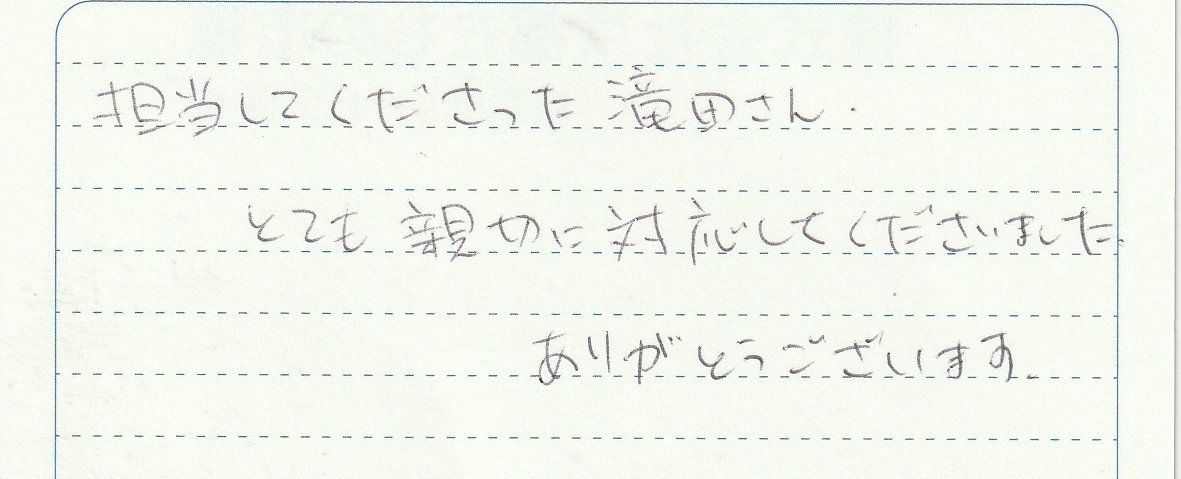 担当してくださった滝田さん.
とても親切に対応してくださいました.
ありがとうございます.